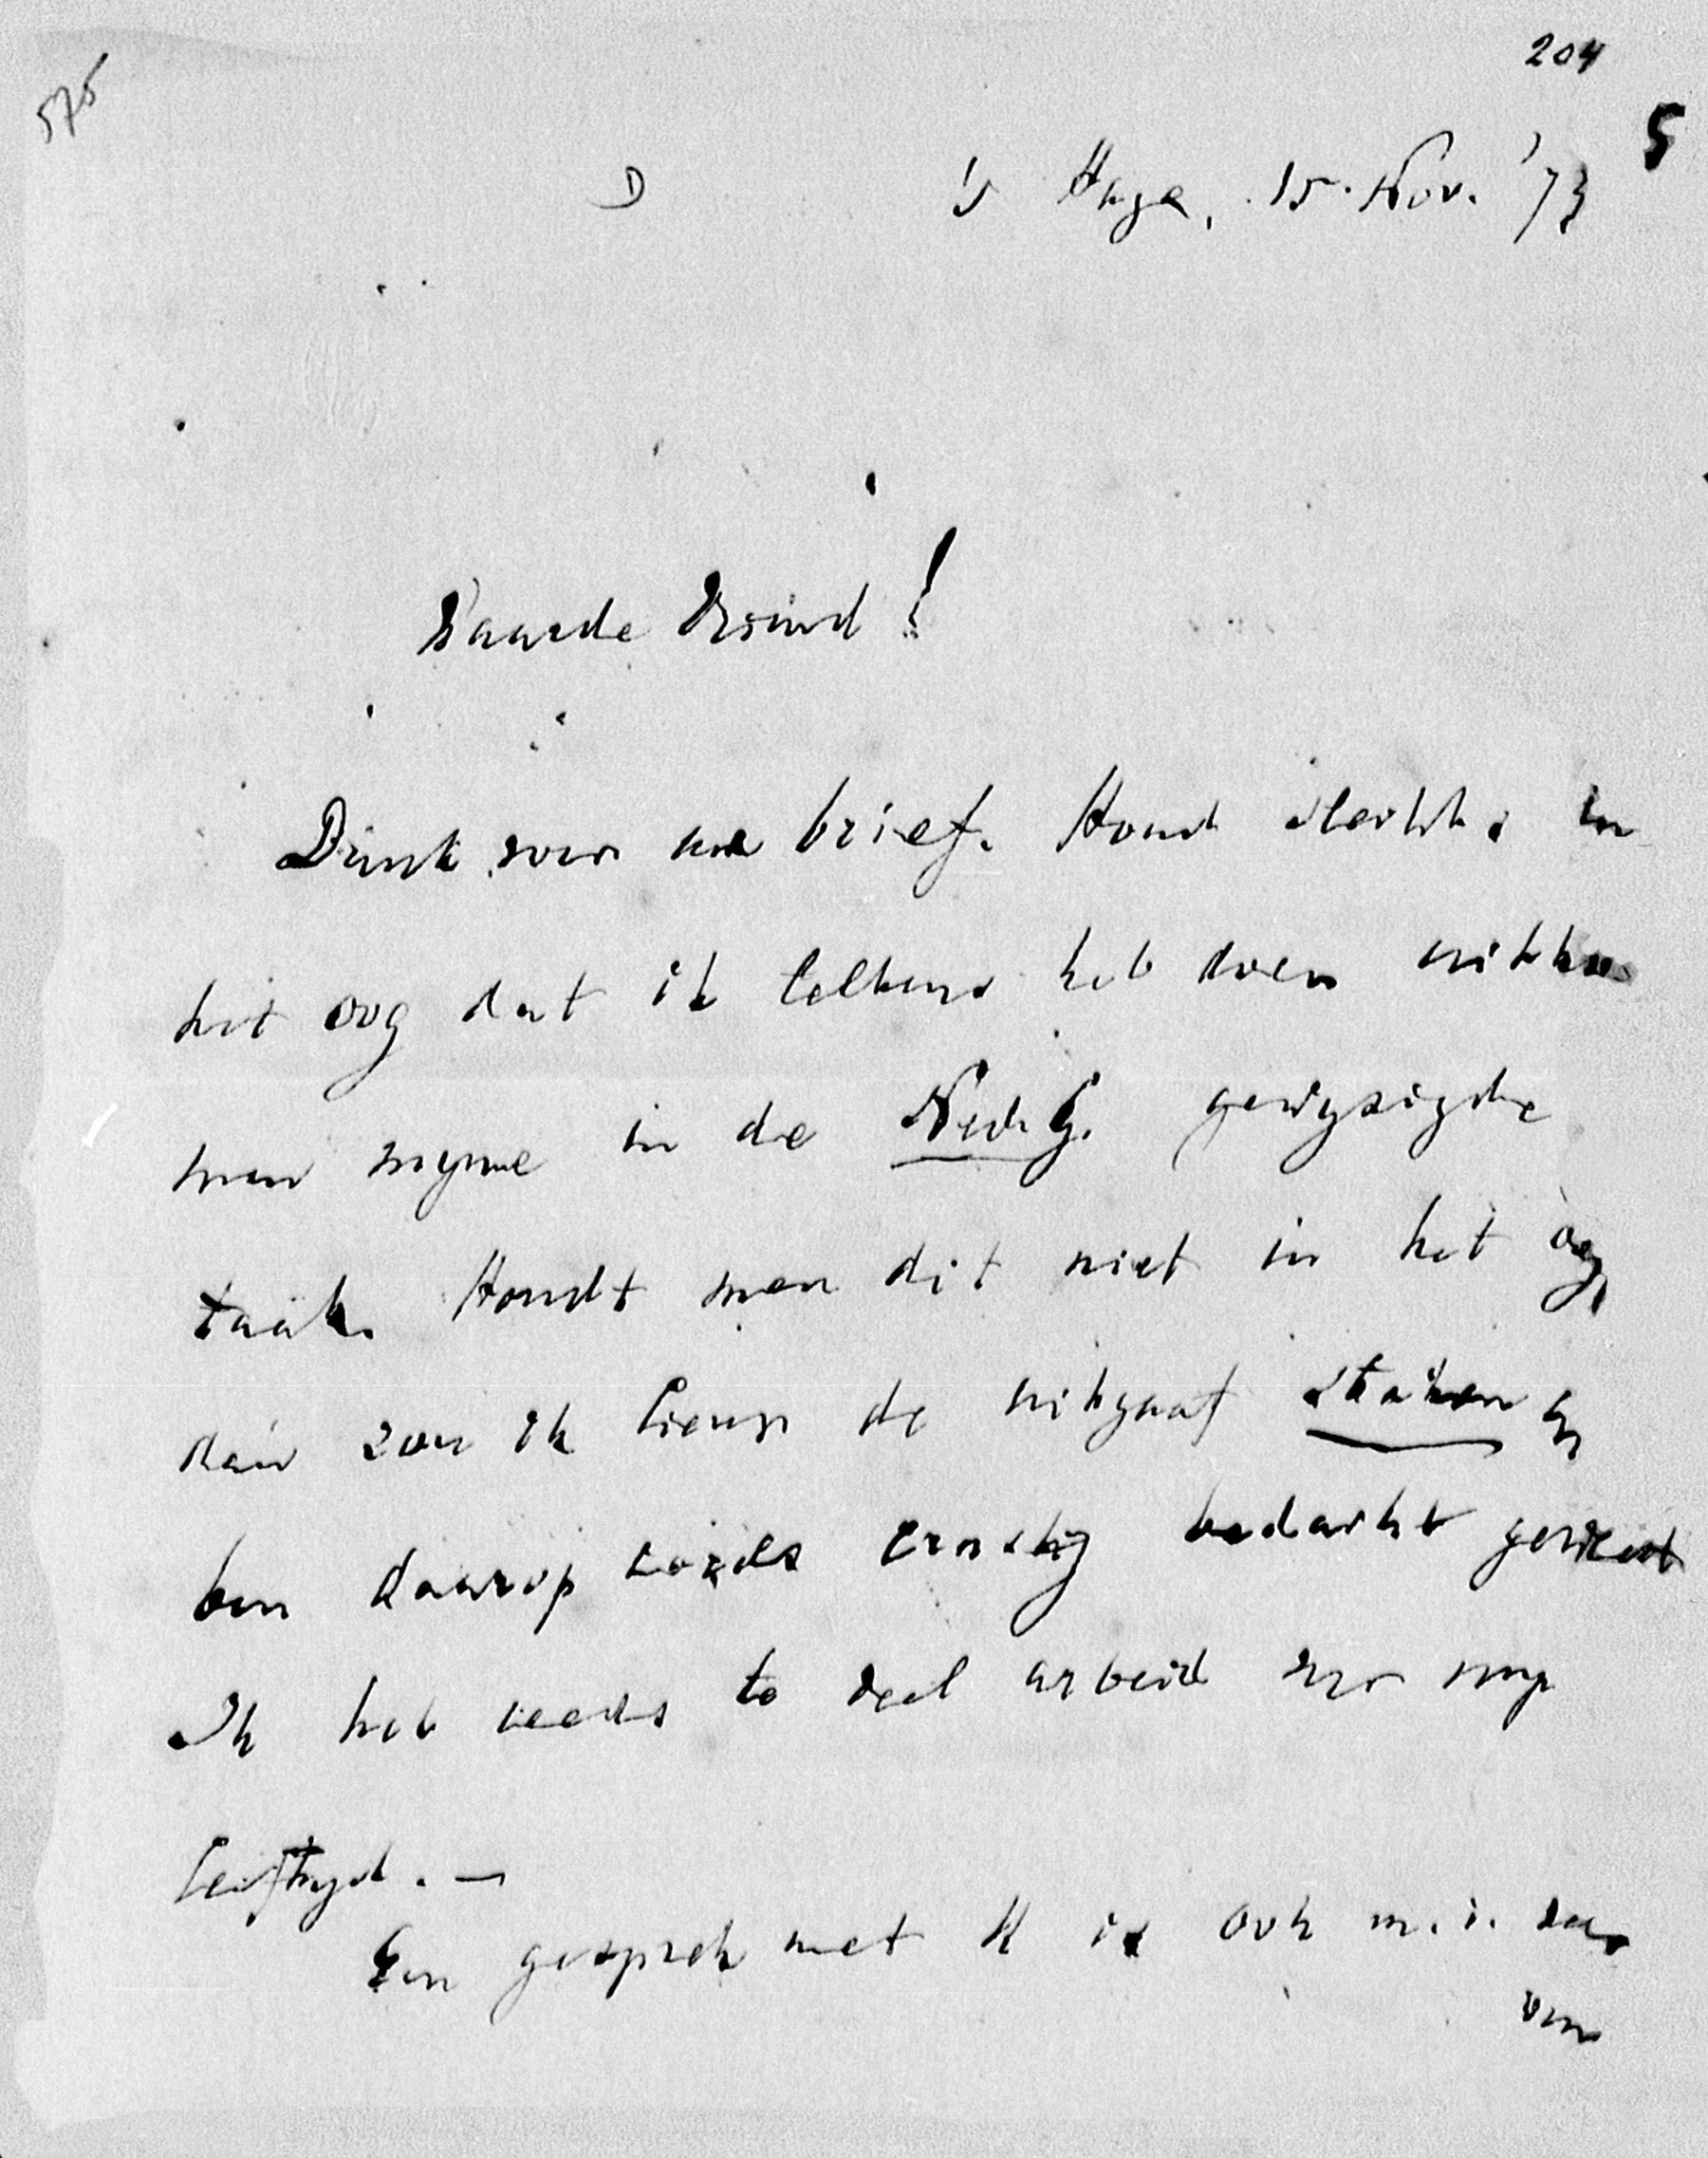 204
575
5
D
's Hage, 15 Nov. '73
Waarde Vriend!
Dank voor uw brief. Houd slechts in
het oog dat ik telkens heb doen uitko
men mijne in de Ned. G. gewijzigde
taak. Houdt men dit niet in het oog,
dan zou ik liever de uitgaaf staken en
ben daarop reeds ernstig bedacht geweest
Ik heb reeds te veel arbeid voor mijn
leeftijd. —
Een gesprek met K is ook m.i.
om